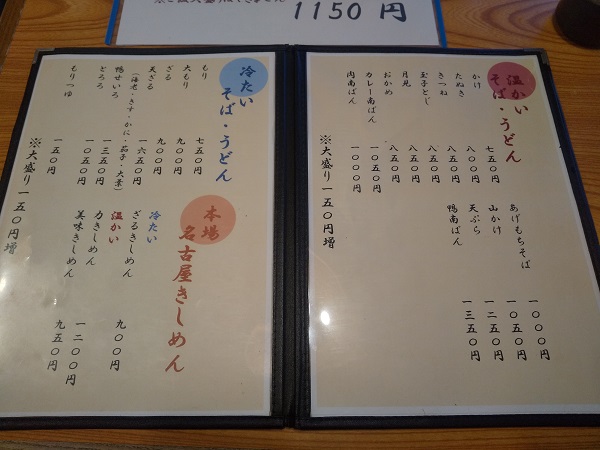 1150円
温かい
そば・うどん
かけ 七五〇円
たぬき 八〇〇円
きつね 八五〇円
玉子とじ 八五〇円
月見 八五〇円
おかめ 八五〇円
カレー南ばん 一〇五〇円
肉南ばん 一〇〇〇円
※大盛り一五〇円増
あげもちそば 一〇〇〇円
山かけ 一〇五〇円
天ぷら 一二五〇円
鴨南ばん 一三五〇円
冷たい
そば・うどん
もり 七五〇円
大もり 九〇〇円
ざる 九〇〇円
天ざる 一六五〇円
(海老・きす・かに・茄子・大葉)
鴨せいろ 一三五〇円
とろろ 一〇五〇円
もりつゆ 一五〇円
※大盛り一五〇円増
本場
名古屋きしめん
冷たい
ざるきしめん 九〇〇円
温かい
力きしめん 一二〇〇円
美味きしめん 九五〇円